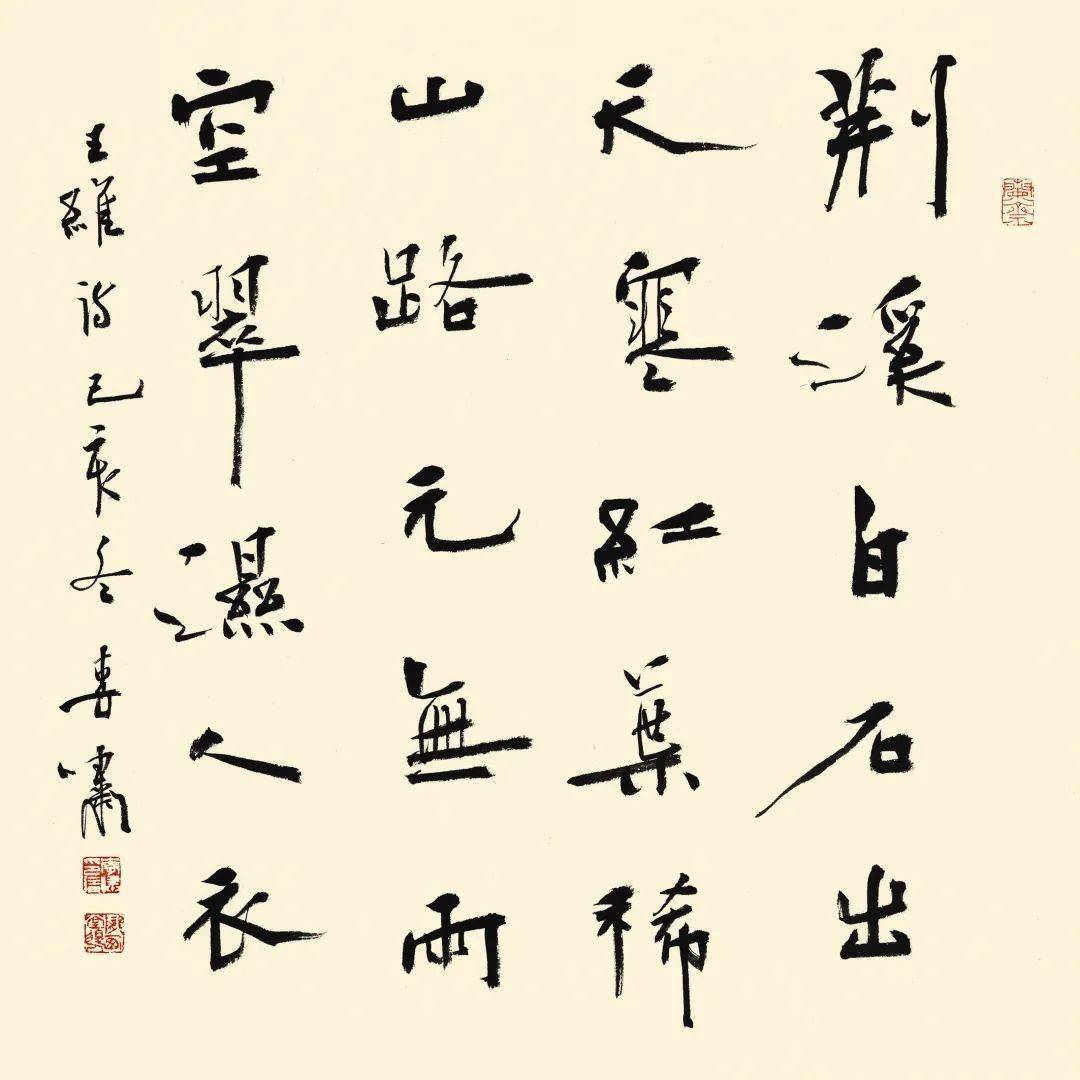 荊溪白石出
天寒紅葉稀
山路元無雨
空翠濕人衣
王維詩己亥冬嘯